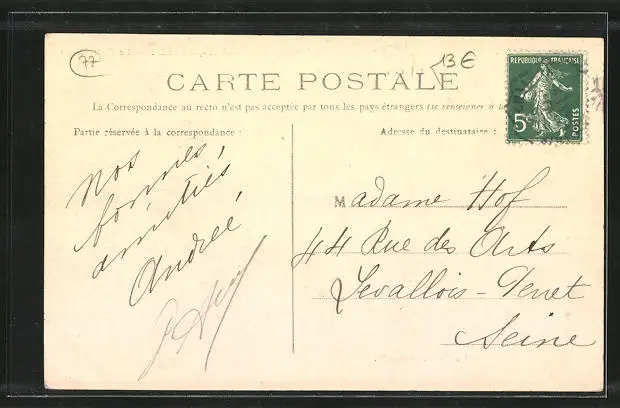 77
13€
CARTE POSTALE
La Correspondance au recto n'est pas acceptée par tous les pays étrangers (se renseigner à la
Partie réservée à la correspondance :
Adresse du destinataire :
REPUBLIQUE FRANÇAISE
5c
POSTES
Nos
bonnes,
amitiés
Andrée,
Madame Hof
44 Rue des Arts
Levallois-Perret
Seine